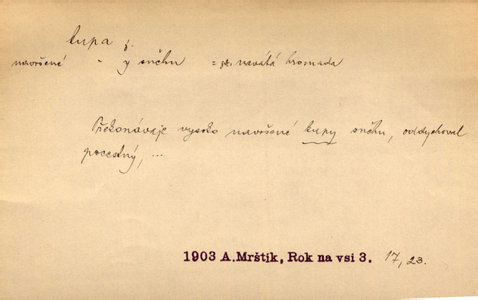 kupa ž.
navršené - y sněhu = zvl. navátá hromada
Překonávaje vysoko navršené kupy sněhu, oddychoval
pocestný, ...
1903 A.Mrštík, Rok na vsi 3. 17, 23.